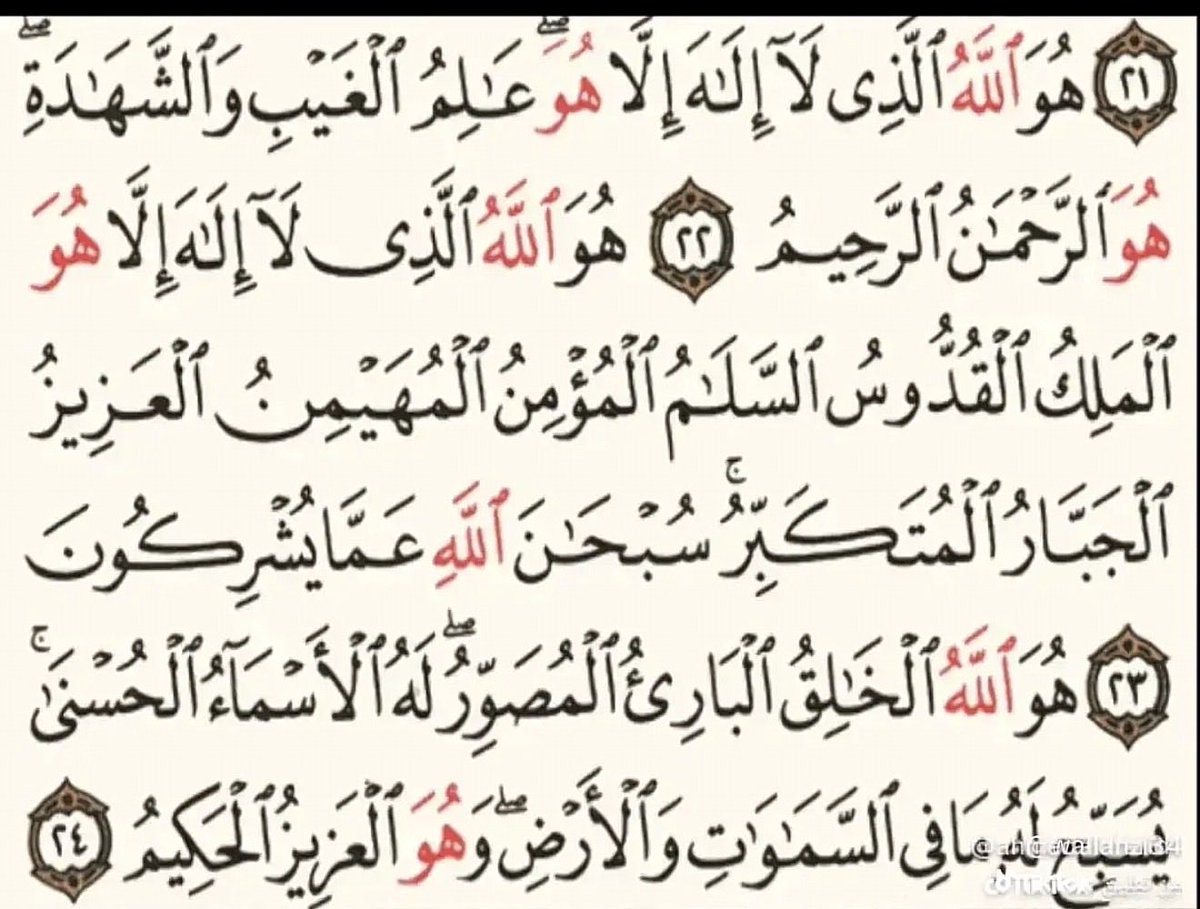 ٢١ هُوَ ٱللَّهُ ٱلَّذِى لَآ إِلَـٰهَ إِلَّا هُوَ ۖ عَـٰلِمُ ٱلْغَيْبِ وَٱلشَّهَـٰدَةِ ۖ
هُوَ ٱلرَّحْمَـٰنُ ٱلرَّحِيمُ ٢٢ هُوَ ٱللَّهُ ٱلَّذِى لَآ إِلَـٰهَ إِلَّا هُوَ
ٱلْمَلِكُ ٱلْقُدُّوسُ ٱلسَّلَـٰمُ ٱلْمُؤْمِنُ ٱلْمُهَيْمِنُ ٱلْعَزِيزُ
ٱلْجَبَّارُ ٱلْمُتَكَبِّرُ ۚ سُبْحَـٰنَ ٱللَّهِ عَمَّا يُشْرِكُونَ
٢٣ هُوَ ٱللَّهُ ٱلْخَـٰلِقُ ٱلْبَارِئُ ٱلْمُصَوِّرُ ۖ لَهُ ٱلْأَسْمَآءُ ٱلْحُسْنَىٰ ۚ
يُسَبِّحُ لَهُۥ مَا فِى ٱلسَّمَـٰوَٰتِ وَٱلْأَرْضِ ۖ وَهُوَ ٱلْعَزِيزُ ٱلْحَكِيمُ ٢٤